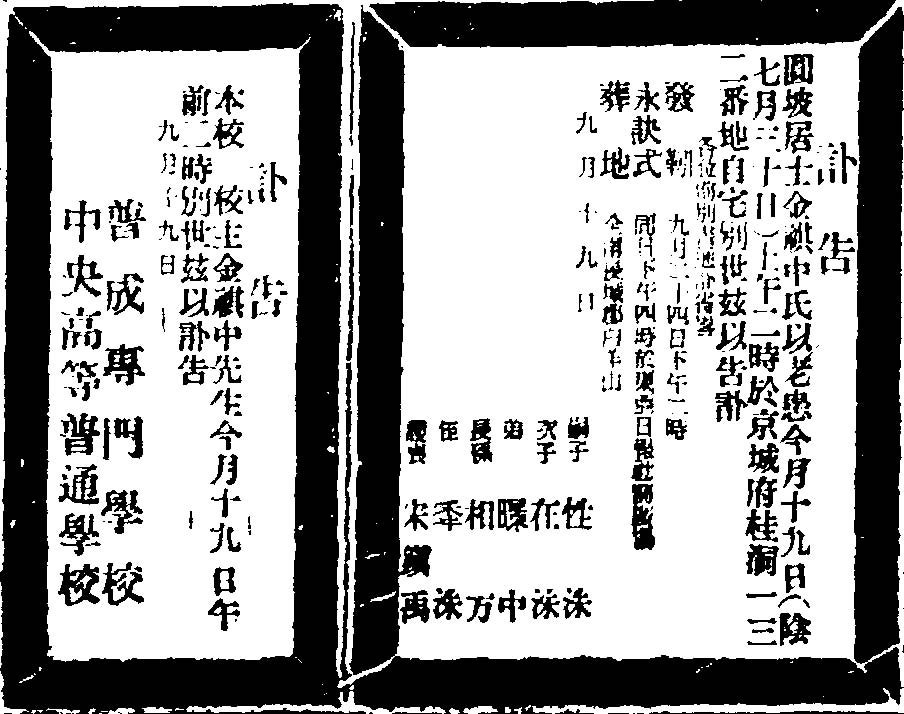 訃告
圓坡居士金祺中氏以老患今月十九日(陰
七月三十日)上午二時於京城府桂洞一三
二番地自宅別世玆以告訃
發靷 九月二十四日下午二時
永訣式 同日下午四時於東亞日報社
葬地
九月十九日
嗣子 性洙
次子 在洙
弟 暻中
長孫 相万
侄 洙
護喪 宋鎭禹
訃告
本校 校主金祺中先生今月十九日午
前二時別世玆以訃告
九月十九日
普成專門學校
中央高等普通學校